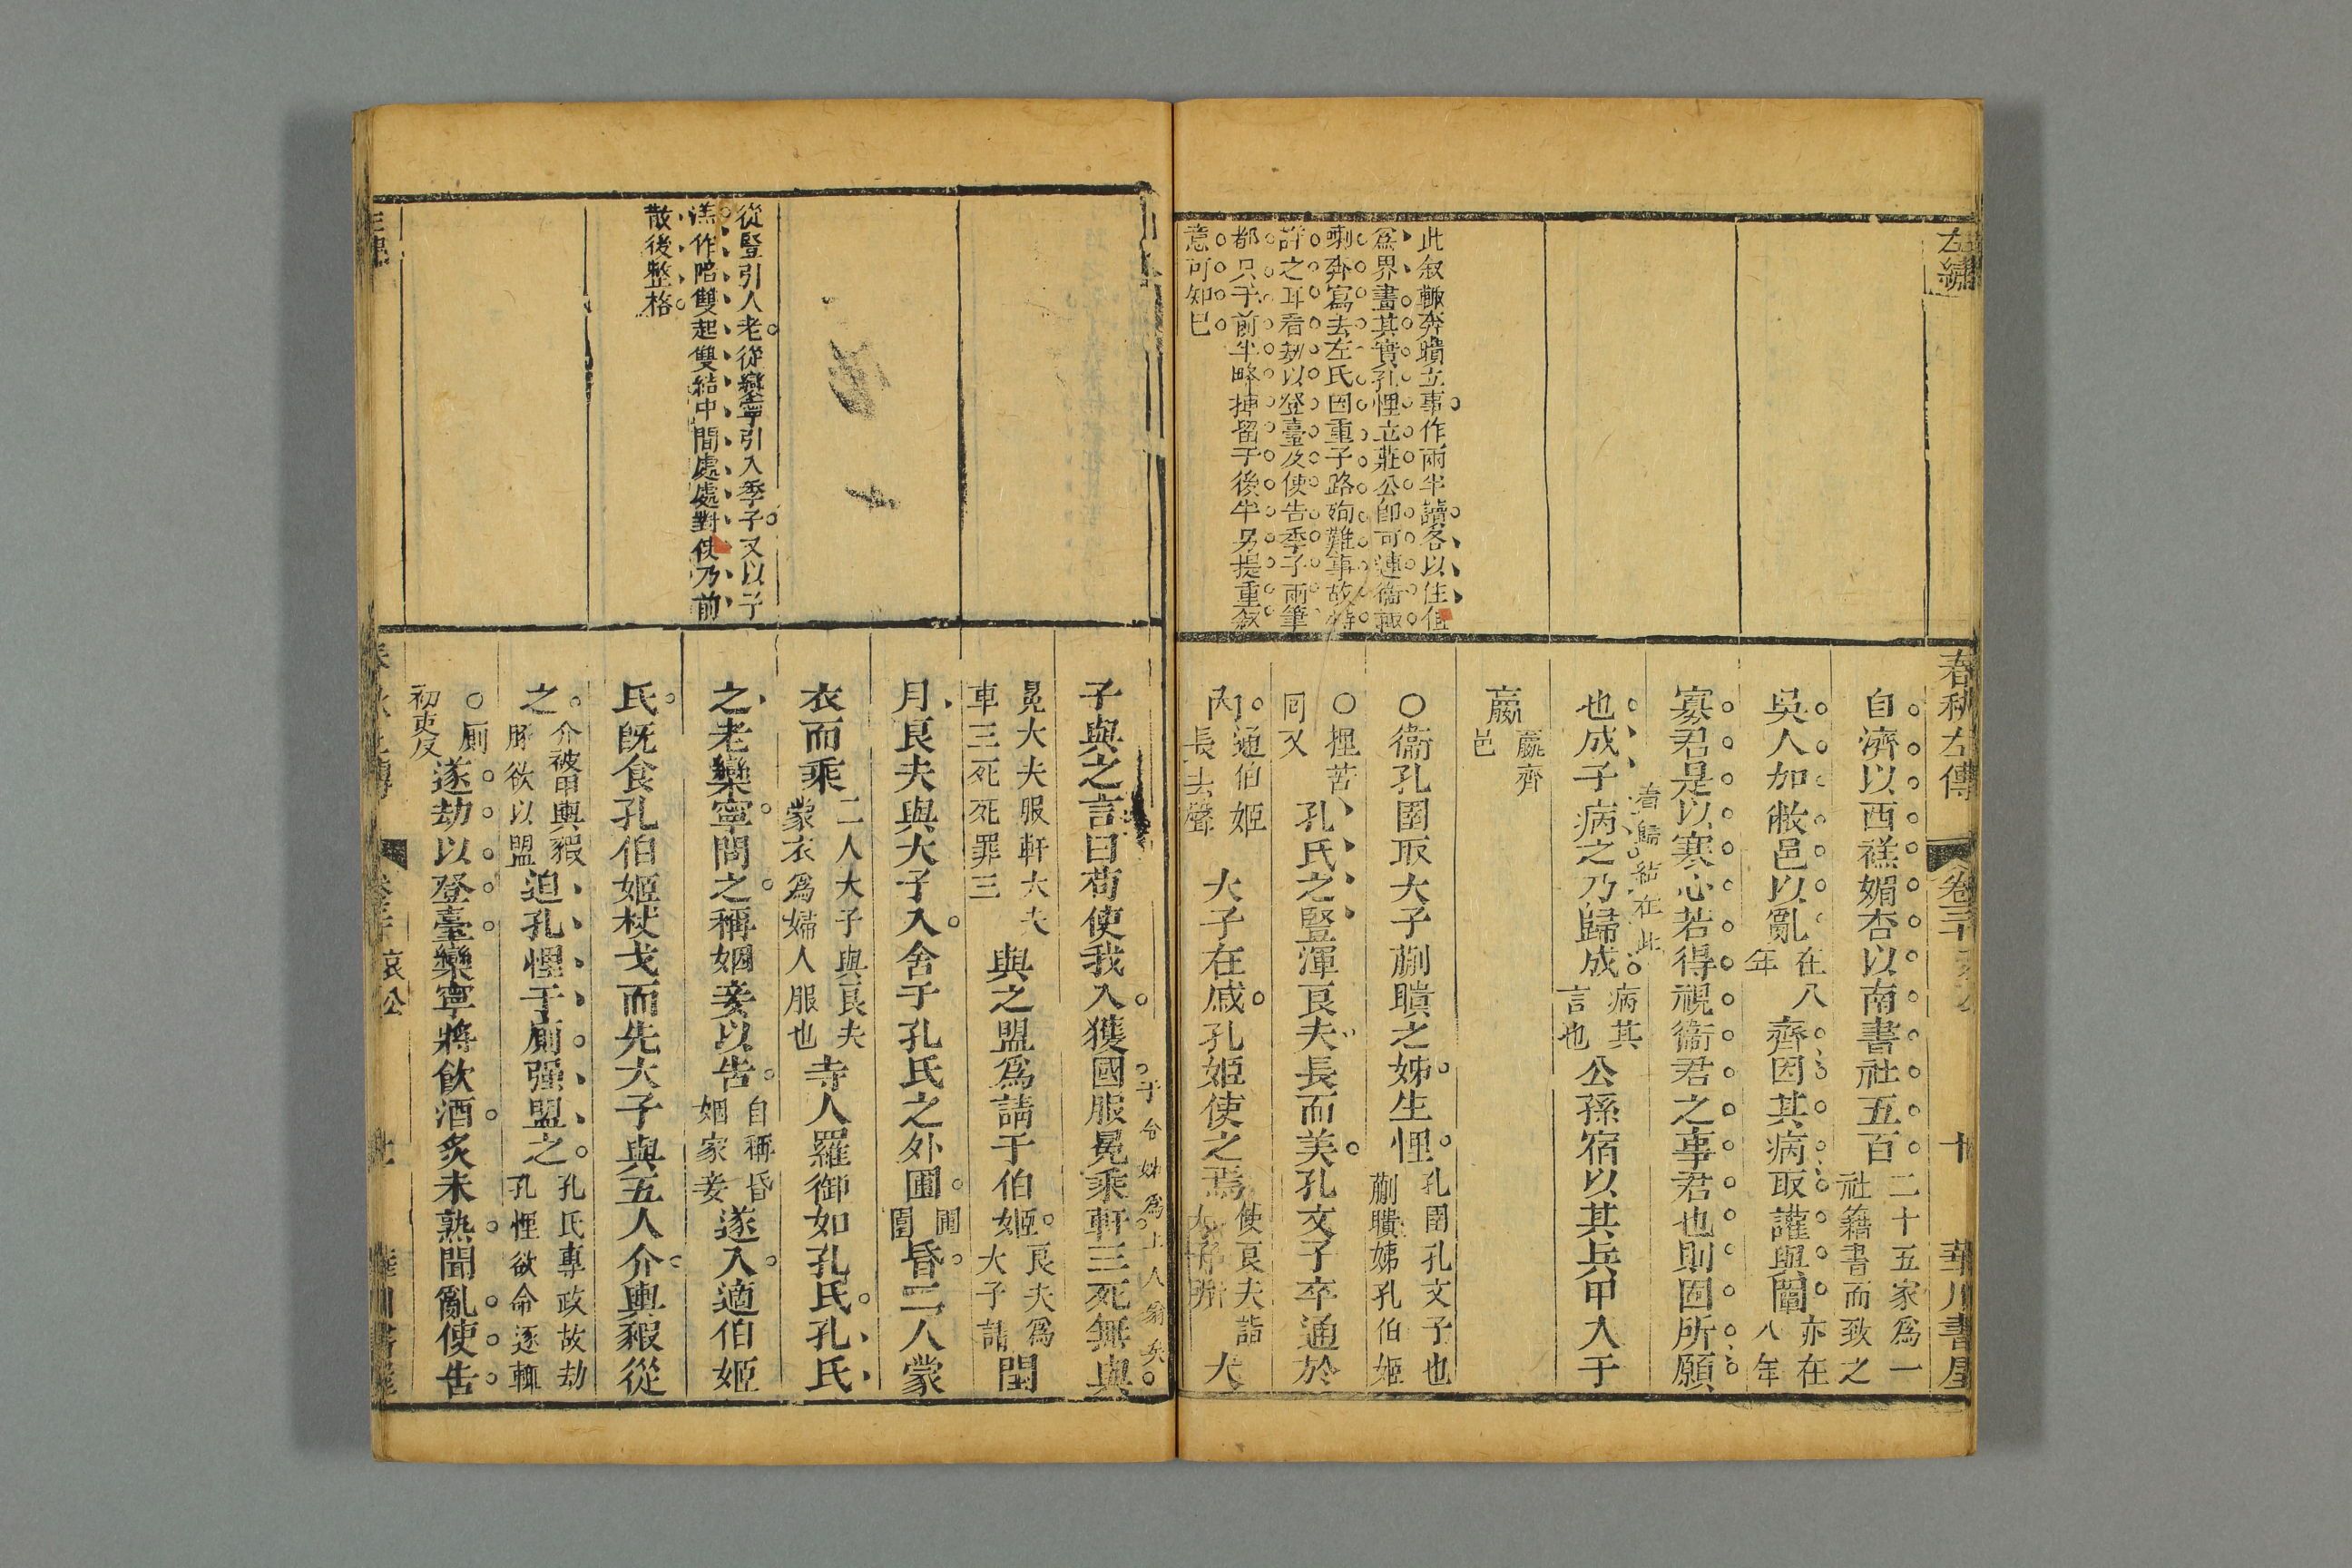 左繡
此叙輒奔聵立事作兩半讀各以住值
爲界畫其實孔悝立莊公卽可連衞輒
奔寫去左氏因重子路殉難事故
詳之耳看劫以登臺及使告季子兩筆
都只于前半略揷留于後半另提重叙
意可知已
春秋左傳 卷三十 十 華川書屋
自濟以西禚媚杏以南書社五百二十五家爲一社籍書而致之
吳人加敝邑以亂在八年齊因其病取讙與闡亦在八年
寡君是以寒心若得視衞君之事君也則固所願
着歸結在此
也成子病之乃歸成病其言也公孫宿以其兵甲入于
嬴嬴齊邑
○衞孔圉取大子蒯聵之姊生悝孔圉孔文子也蒯聵姊孔伯姬
○悝苦回又孔氏之豎渾良夫長而美孔文子卒通於
內通伯姬長去聲大子在戚孔姬使之焉使良夫詣大子所大
從豎引人老從欒寧引入季子又以子
羔作陪雙起雙結中間處處對使乃前
散後整格
子與之言曰苟使我入獲國服冕乘軒三死無與
冕大夫服軒大夫車三死死罪三與之盟爲請于伯姬良夫爲大子請閏
月良夫與大子入舍于孔氏之外圃圃園昏二人蒙
衣而乘二人大子與良夫蒙衣爲婦人服也寺人羅御如孔氏孔氏
之老欒寧問之稱姻妾以告自稱昏姻家妾遂入適伯姬
氏旣食孔伯姬杖戈而先大子與五人介輿豭從
之介被甲輿豭豚欲以盟迫孔悝于廁强盟之孔氏專政故劫孔悝欲令逐輒
○廁初吏反遂劫以登臺欒寧將飮酒炙未熟聞亂使告
哀公